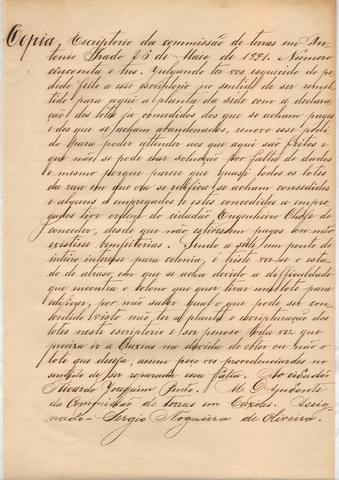 Copia, Escriptorio da commissão de terras em An-
tonio Prado 26 de Maio de 1891. Numero
cincoenta e tres. Julgando ter vos esquecido do pe-
dido feito a esse escriptorio no sentido de ser remet-
tido para aqui a planta da sede com a declara-
ção dos lotes ja concedidos dos que se acham pagos
e dos que se acham abandonados, renovo esse pedi-
do para poder attender aos que aqui são feitos e
que não se pode dar solução por falta de dados
e mesmo porque parece que quasi todos os lotes
da rua em que ora se edifica se acham concedidos
e alguns a empregados e estes concedidos a empre-
gados tive ordem do cidadão Engenheiro Chefe de
conceder, desde que não estivessem pagos ou não
existisse bemfeitorias. Sendo a séde um ponto de
inteiro interesse para colonia, é triste ver-se o esta-
do de atraso em que se acha devido a difficuldade
que encontra o colono que quer tirar um lote para
edificar, por não saber qual o que pode ser con-
cedido visto não ter a planta e escripturação dos
lotes neste escriptorio e ser penoso toda vez que
precisa ir a Caxias na duvida de obter ou não o
lote que deseja, assim peço vos providenciardes no
sentido de ser reparada essa falta. Ao cidadão
Ricardo Joaquim Pinto. M. D. Ajudante
da Commissão de terras em Caxias. Assig-
nado - Sergio Nogueira de Oliveira.